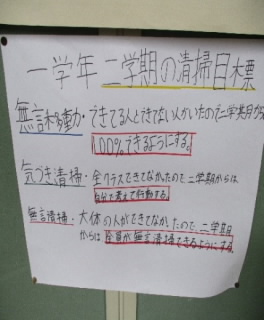 一学年 二学期の清掃目標
無言移動・できてる人とできてない人がいたので二学期目から
100%できるようにする。
気づき清掃・全クラスできてなかったので二学期からは、
自分で考えて行動する。
無言清掃・大体の人ができてなかったので、二学期目
からは全員が無言清掃できるようにする。